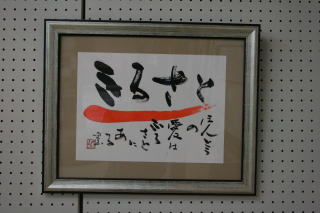 ふるさと
ほんとう
の
愛は
ふるさと
に
ある